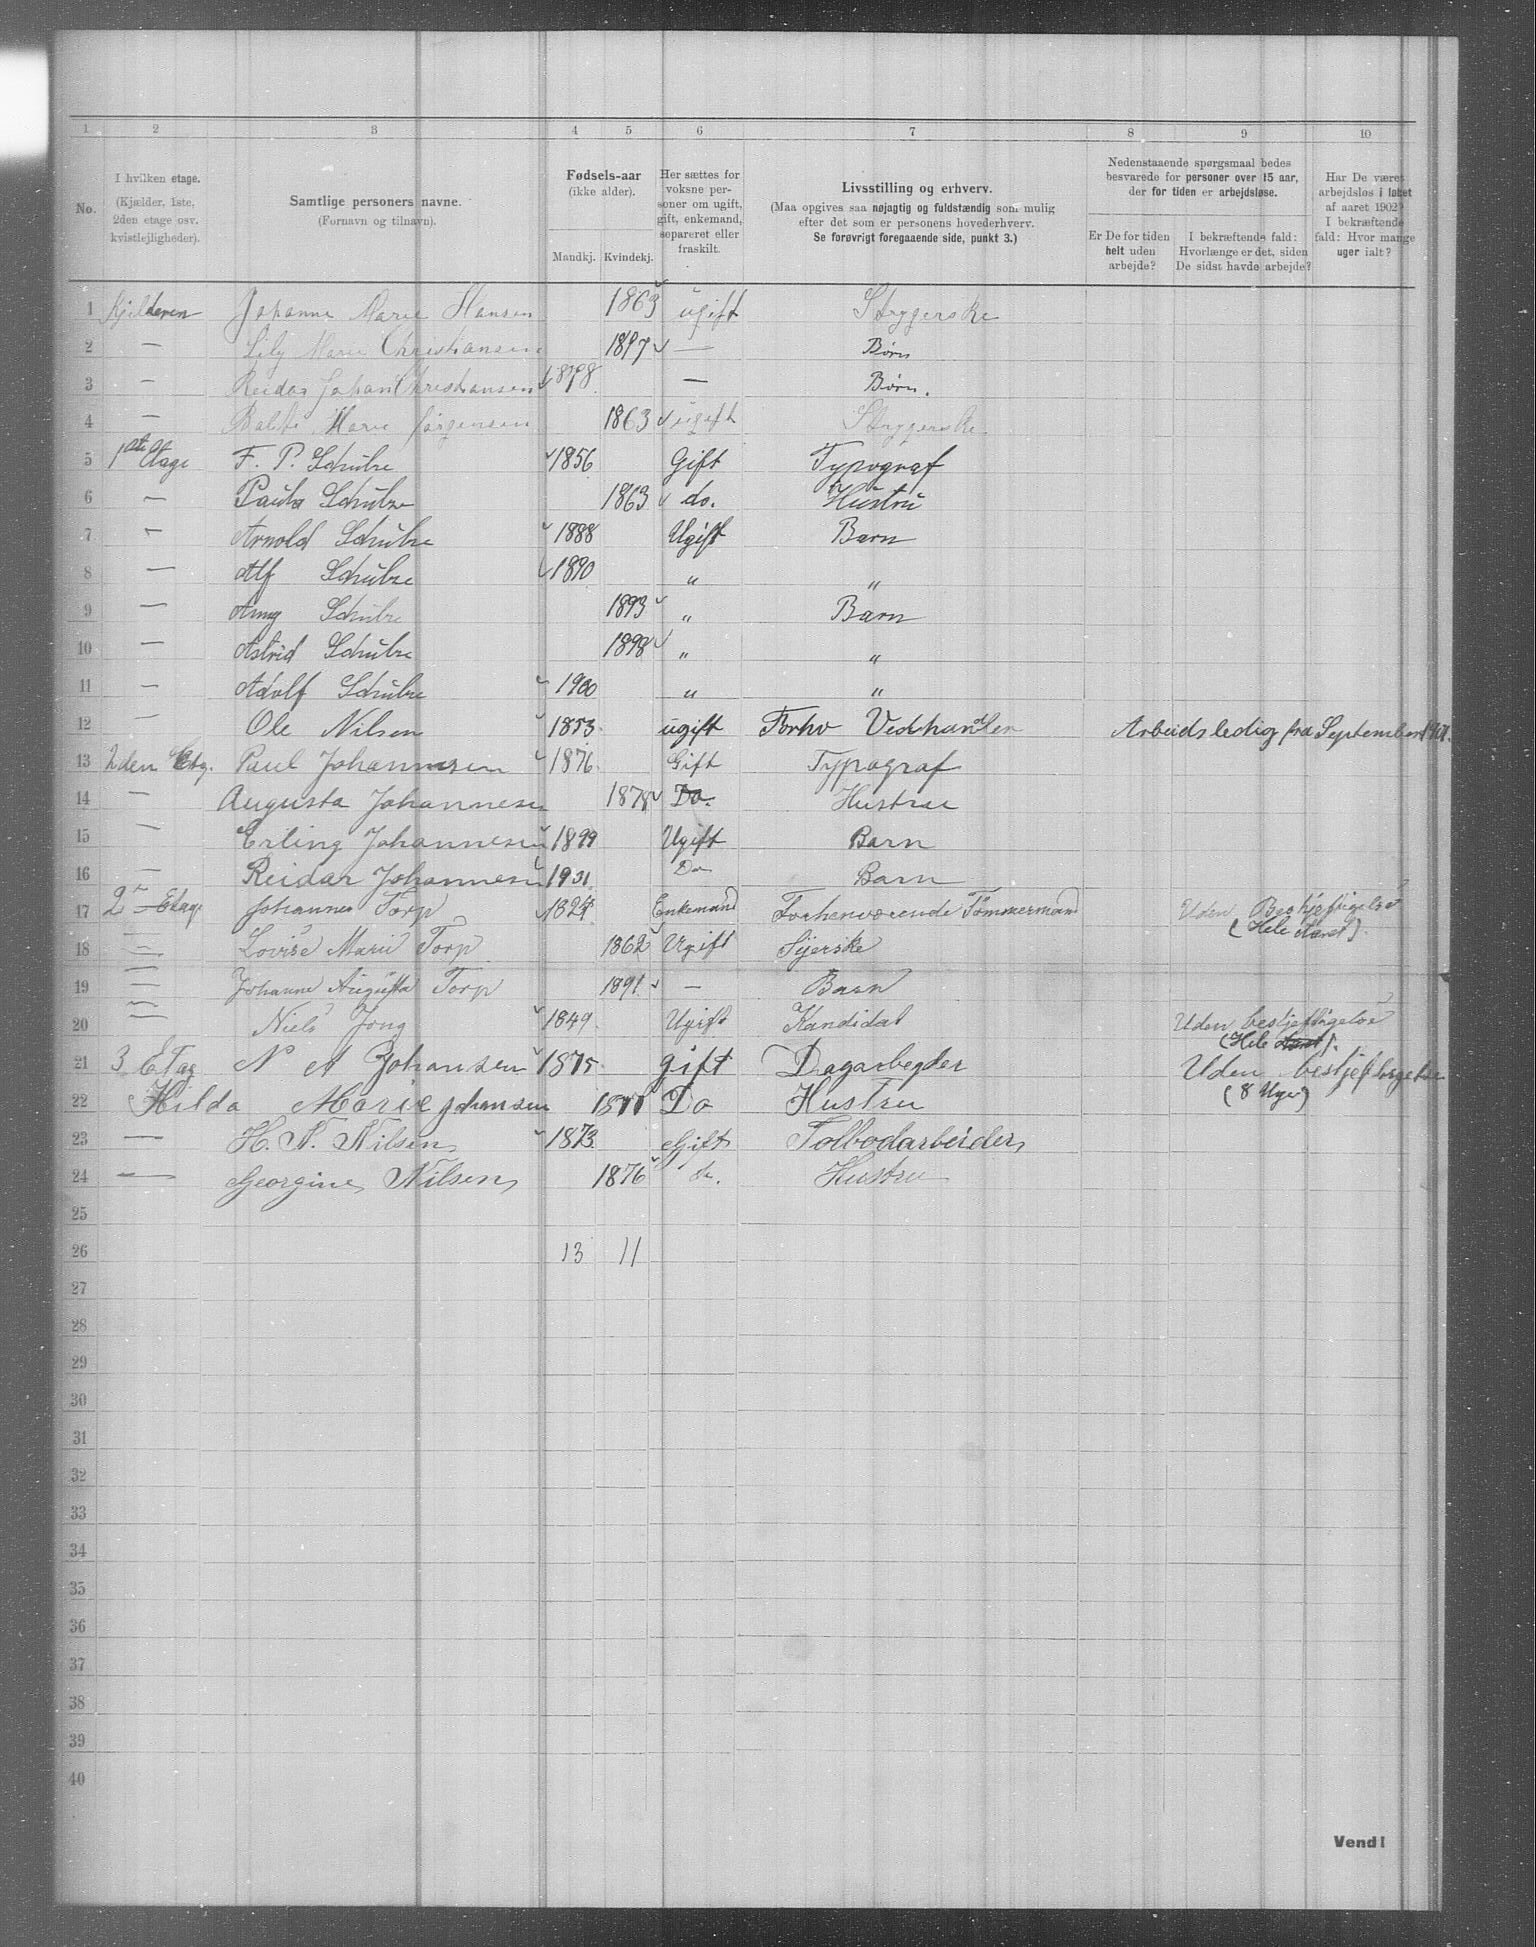 1 2 3 4 5 6 7 8 9 10
No.
I hvilken etage.
(Kjælder, 1ste,
2den etage osv.
kvistlejligheder).
Samtlige personers navne.
(Fornavn og tilnavn).
Fødsels-aar
(ikke alder).
Mandkj. Kvindekj.
Her sættes for
voksne per-
soner om ugift,
gift, enkemand,
separeret eller
fraskilt.
Livsstilling og erhverv.
(Maa opgives saa nøjagtig og fuldstændig som mulig
efter det som er personens hovederhverv.
Se forøvrigt foregaaende side, punkt 3.)
Nedenstaaende spørgsmaal bedes
besvarede for personer over 15 aar,
der for tiden er arbejdsløse.
Er De for tiden
helt uden
arbejde?
I bekræftende fald:
Hvorlænge er det, siden
De sidst havde arbejde?
Har De været
arbejdsløs i løbet
af aaret 1902?
I bekræftende
fald: Hvor mange
uger ialt?
1 Kjelderen Johanne Marie Hansen 1863 ugift Strygerske
2 — Lily Marie Christiansen 1897 — Børn
3 — Reidar Johan Christiansen 1898 — Børn.
4 — Marie Jørgensen 1863 ugift Strygerske
5 1ste Etage F. P. Schulze 1856 Gift Typograf
6 — Paula Schulze 1863 do. Hustru
7 — Arnold Schulze 1888 Ugift Barn
8 — Alf Schulze 1890 " "
9 — Amy Schulze 1893 " Barn
10 — Astrid Schulze 1898 " "
11 — Adolf Schulze 1900 " "
12 — Ole Nilsen 1853 ugift Forhv Vedhandler Arbeidsledig fra September 1901.
13 2den Etg. Paul Johannesen 1876 Gift Typograf
14 — Augusta Johannesen 1878 Do. Hustrue
15 — Erling Johannesen 1899 Ugift Barn
16 — Reidar Johannesen 1901 Do Barn
17 2 Etage Johannes Torp 1824 Enkemand Forhenværende Tømmermand Uden Beskjeftigelse
(Hele Aaret).
18 — Lovise Marie Torp 1862 Ugift Sijerske
19 — Johanne Augusta Torp 1891 — Barn
20 — Niels Jong 1849 Ugift Kandidat Uden beskjeftigelse
(Hele Aaret).
21 3 Etag N A Johansen 1875 gift Dagarbegder Uden beskjeftigelse
(8 Uger)
22 Hilda Marie Johansen 1877 Do Hustru
23 — H. N. Nilsen 1873 Gift Tolbodarbeider
24 — Georgine Nilsen 1876 do. Hustru
25
26 13 11
27
28
29
30
31
32
33
34
35
36
37
38
39
40
Vend!